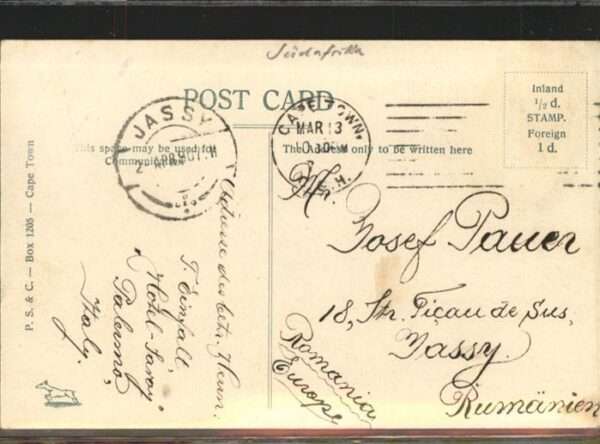 Südafrika
POST CARD
Inland
½ d.
STAMP.
Foreign
1 d.
JASSY
2 APR
CAPE TOWN
MAR 13
10 30 PM
This space may be used for
Communication
The Address only to be written here
P. S. & C. — Box 1205 — Cape Town
Adresse des betr. Herrn:
T. Einfalt
"Hotel-Savoy"
Palermo,
Italy.
Mr.
Josef Pauer
18, Str. Ticau de Sus,
Jassy.
Rumänien
Romania
Europe